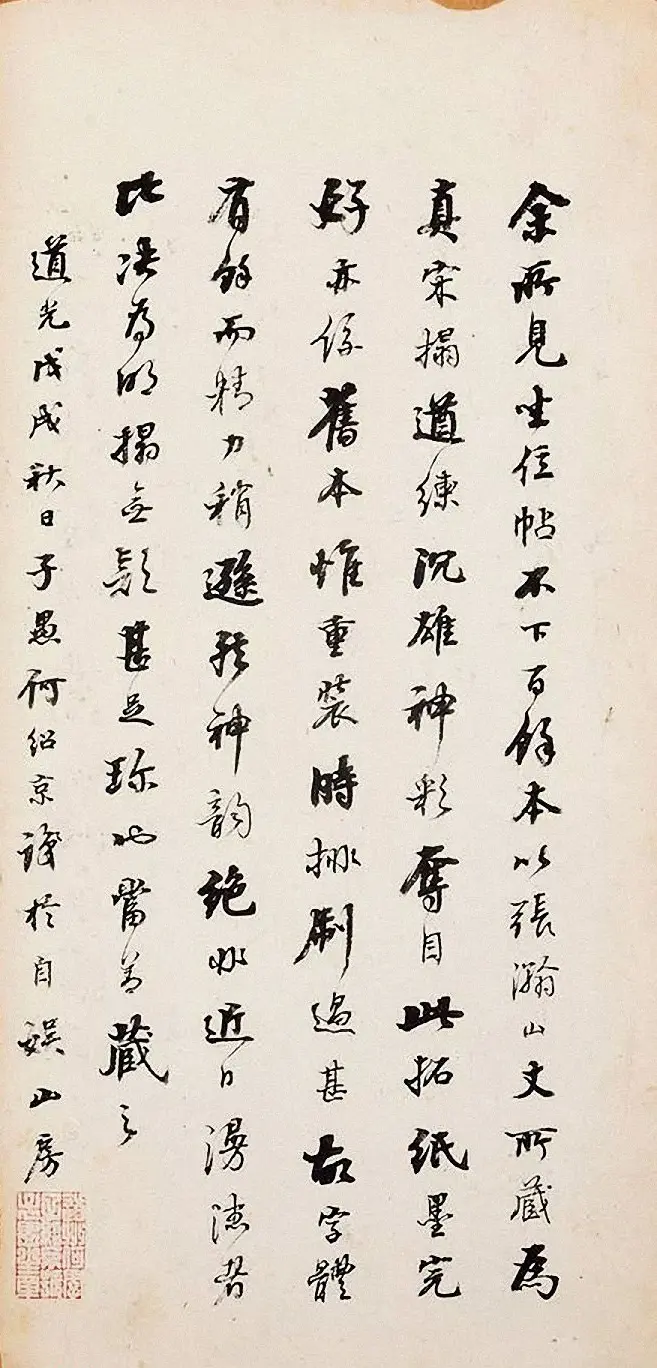 余所見坐位帖不下百餘本以張瀚山丈所藏為
真宋搨遒練沉雄神彩奪目此拓紙墨完
好亦係舊本惟重裝時揪刷過甚故字體
有餘而精力稍遜然神韵絕非近日漫漶者
比決為明搨無疑甚足珍也當善藏之
道光戊戌秋日子愚何紹京識於自娛山房